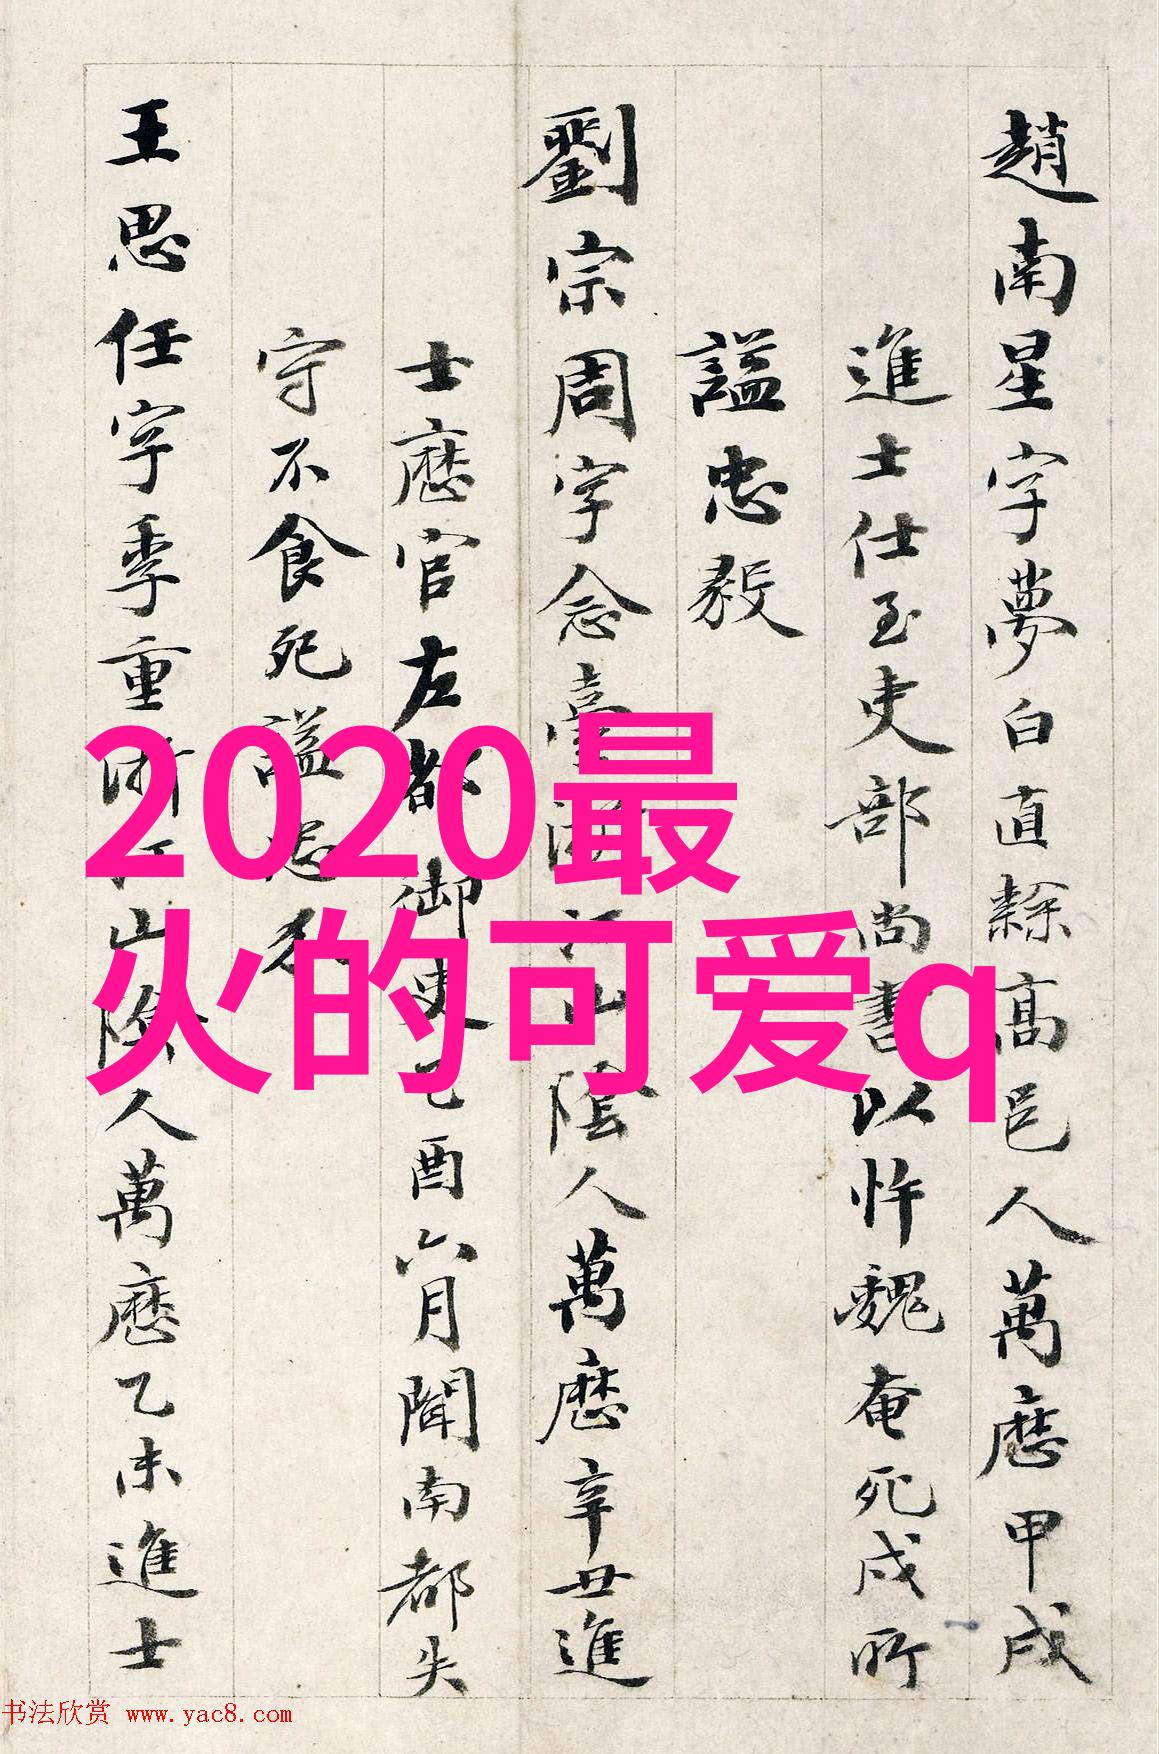 趙南星字夢白直隸高邑人萬曆甲戌
進士仕至吏部尚書以忤魏奄死戍所
謚忠毅
劉宗周字念臺浙江山陰人萬曆辛丑進
士歷官左都御史乙酉六月聞南都失
守不食死謚忠
王思任字季重浙江山陰人萬曆乙未進士
2020最
火的可爱q
书法欣赏 www.yac8.com